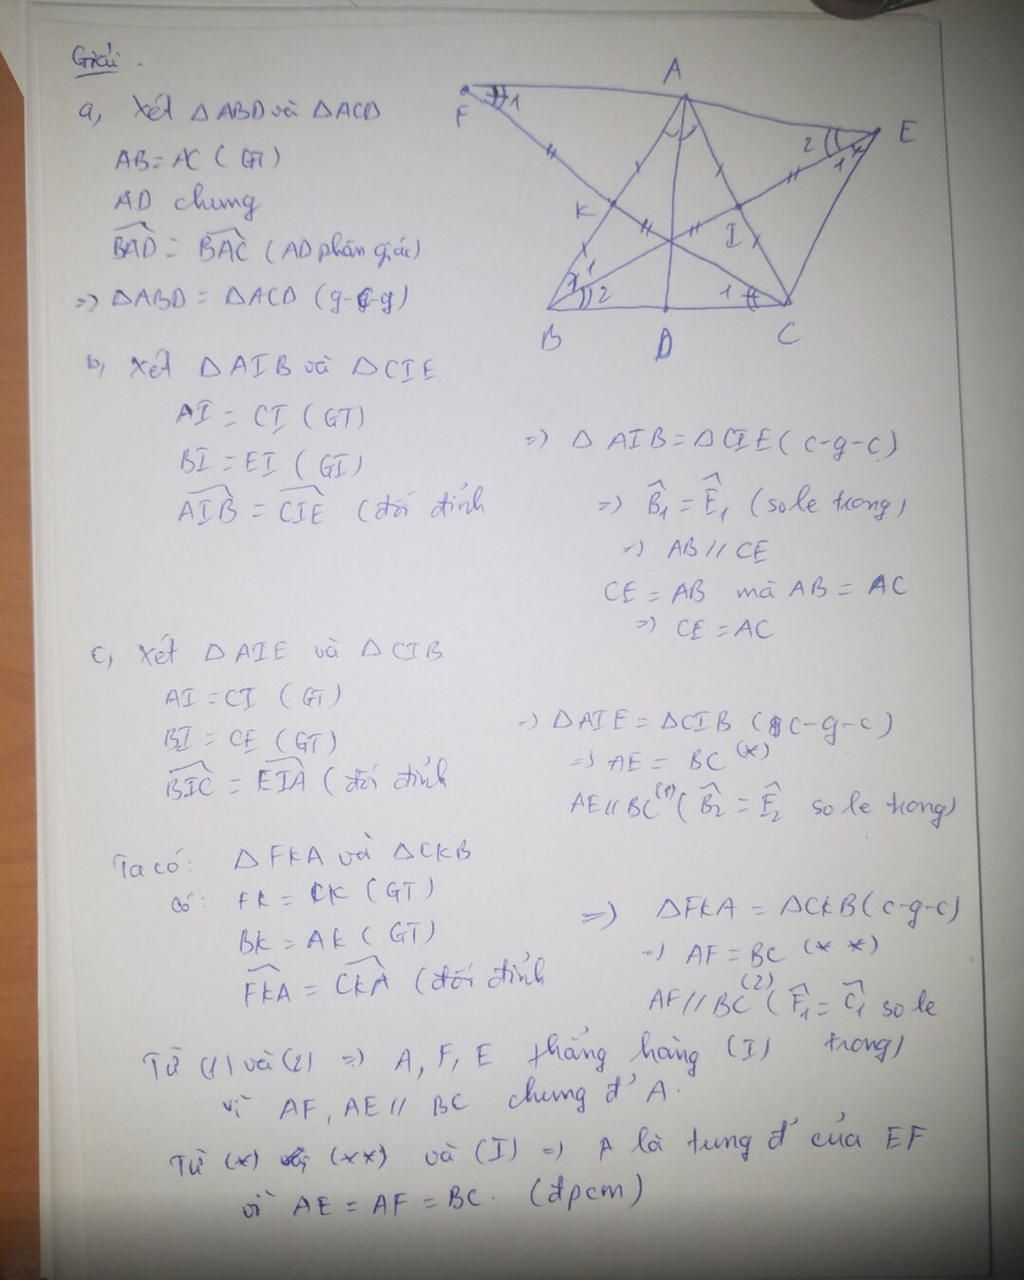 Giải.
a, Xét △ABD và △ACD
AB = AC (GT)
AD chung
BAD = BAC (AD phân giác)
=> △ABD = △ACD (g-c-g)
F
1
A
E
2
1
K
I
1
2
1
B
D
C
b, Xét △AIB và △CIE
AI = CI (GT)
BI = EI (GT)
AIB = CIE (đối đỉnh
=> △AIB = △CIE (c-g-c)
=> B̂₁ = Ê₁ (so le trong)
=> AB // CE
CE = AB mà AB = AC
=> CE = AC
c, Xét △AIE và △CIB
AI = CI (GT)
BI = CE (GT)
BIC = EIA (đối đỉnh
=> △AIE = △CIB (c-g-c)
=> AE = BC (*)
AE // BC (1) (B̂₂ = Ê₂ so le trong)
Ta có: △FKA và △CKB
có: FK = CK (GT)
BK = AK (GT)
FKA = CKA (đối đỉnh
=> △FKA = △CKB (c-g-c)
=> AF = BC (**)
AF // BC (2) (F̂₁ = Ĉ₁ so le
trong)
Từ (1) và (2) => A, F, E thẳng hàng (I)
vì AF, AE // BC chung đ' A.
Từ (*) (**) và (I) => A là tung đ' của EF
vì AE = AF = BC. (đpcm)